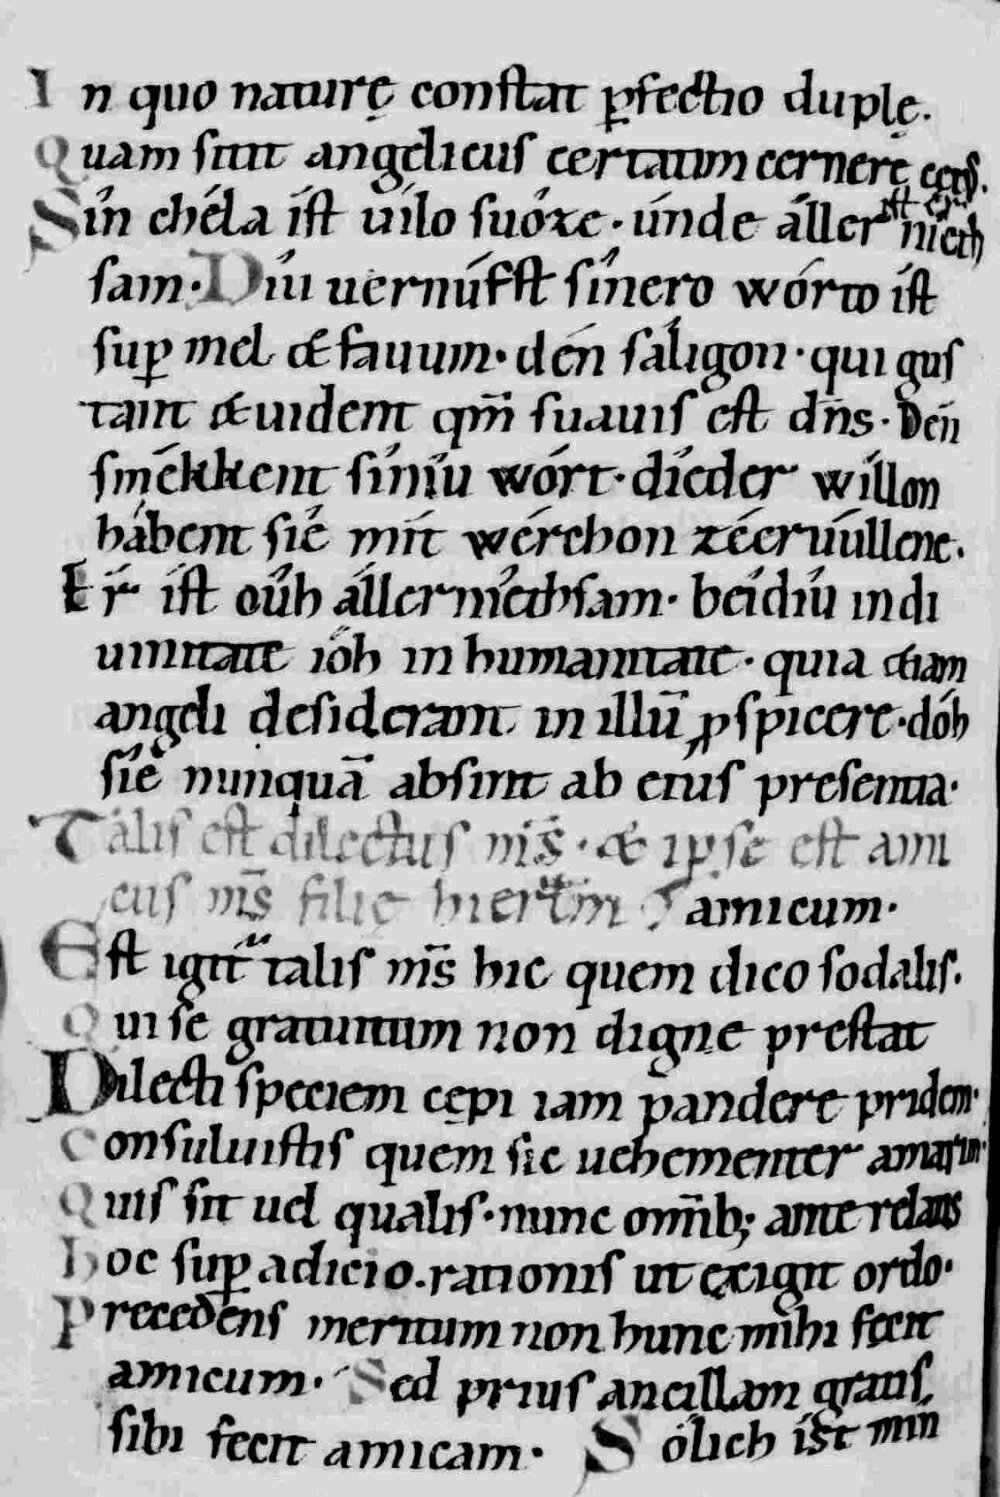 In quo naturę constat ꝑfectio duplę.
Quam sunt angelicus certatim cernere
Sîn chéla ist uîlo suôze· únde áller níeth
sam· Díu uernúfst sînero wórto ist
suꝑ mel & fauum· dén sáligon· qui gus
tant & uident qm̄ suauis est dn̄s· Dén
smékkent sîniu wórt· díeder wíllon
hábent síe mit wérchon zéeruúllene·
Er ist oûh állerníethsam· béidiu in di
uinitate ióh in humanitate· quia etiam
angeli desiderant in illū ꝓspicere· dóh
síe nunquā absint ab eius presentia·
Talis est dilectus ms̄· & ipse est ami
cus ms̄ filię hierłm amicum·
Est igit᷑ talis ms̄ hic quem dico sodalis.
Qui se gratuitum non digne prestat
Dilecti speciem cępi iam pandere pridem·
Consuluistis quem sic uehementer
Quis sit uel qualis· nunc om̄ib; ante relatis
Hoc suꝑadicio. rationis ut exigit ordo·
Precedens meritum non hunc mihi fecit
amicum· Sed prius ancillam gratis
sibi fecit amicam· Sólich ist mîn